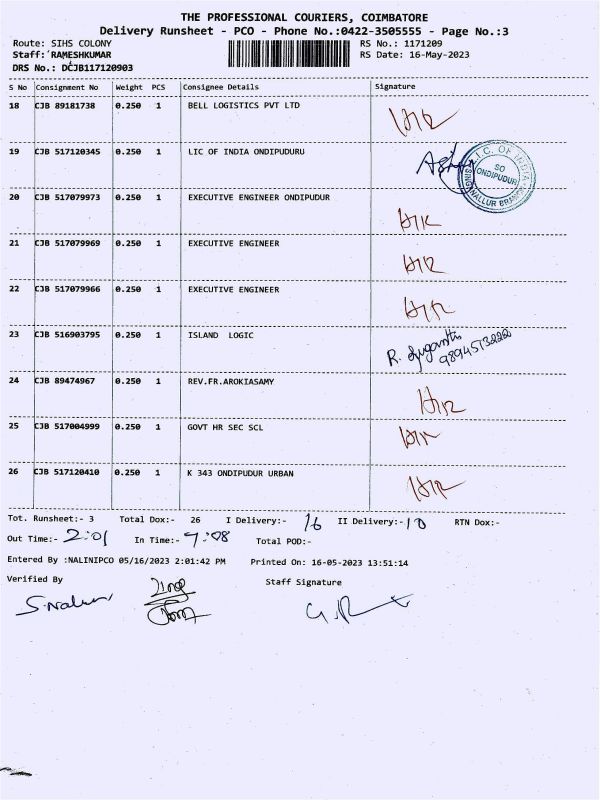 THE PROFESSIONAL COURIERS, COIMBATORE
Delivery Runsheet - PCO - Phone No.:0422-3505555 - Page No.:3
Route: SIHS COLONY RS No.: 1171209
Staff: RAMESHKUMAR RS Date: 16-May-2023
DRS No.: DCJB117120903
S No Consignment No Weight PCS Consignee Details Signature
18 CJB 89181738 0.250 1 BELL LOGISTICS PVT LTD
19 CJB 517120345 0.250 1 LIC OF INDIA ONDIPUDURU
L.I.C. OF INDIA
SO
ONDIPUDUR
SINGANALLUR BRANCH
20 CJB 517079973 0.250 1 EXECUTIVE ENGINEER ONDIPUDUR
21 CJB 517079969 0.250 1 EXECUTIVE ENGINEER
22 CJB 517079966 0.250 1 EXECUTIVE ENGINEER
23 CJB 516903795 0.250 1 ISLAND LOGIC
24 CJB 89474967 0.250 1 REV.FR.AROKIASAMY
25 CJB 517004999 0.250 1 GOVT HR SEC SCL
26 CJB 517120410 0.250 1 K 343 ONDIPUDUR URBAN
Tot. Runsheet:- 3 Total Dox:- 26 I Delivery:- 16 II Delivery:- 10 RTN Dox:-
Out Time:- 2:01 In Time:- 7:08 Total POD:-
Entered By :NALINIPCO 05/16/2023 2:01:42 PM Printed On: 16-05-2023 13:51:14
Verified By Staff Signature